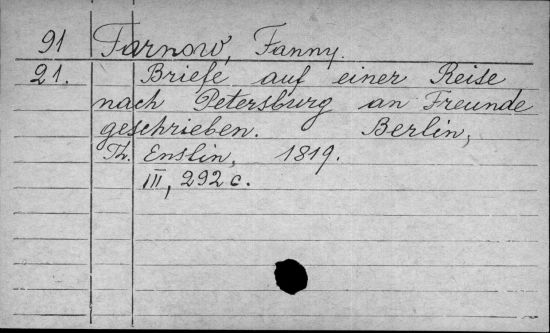 91 Tarnow, Fanny.
21. Briefe auf einer Reise
nach Petersburg an Freunde
geschrieben. Berlin,
Th. Enslin, 1819.
III, 292 c.